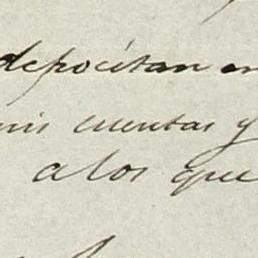 depocitan en
mis cuentas y
a los que